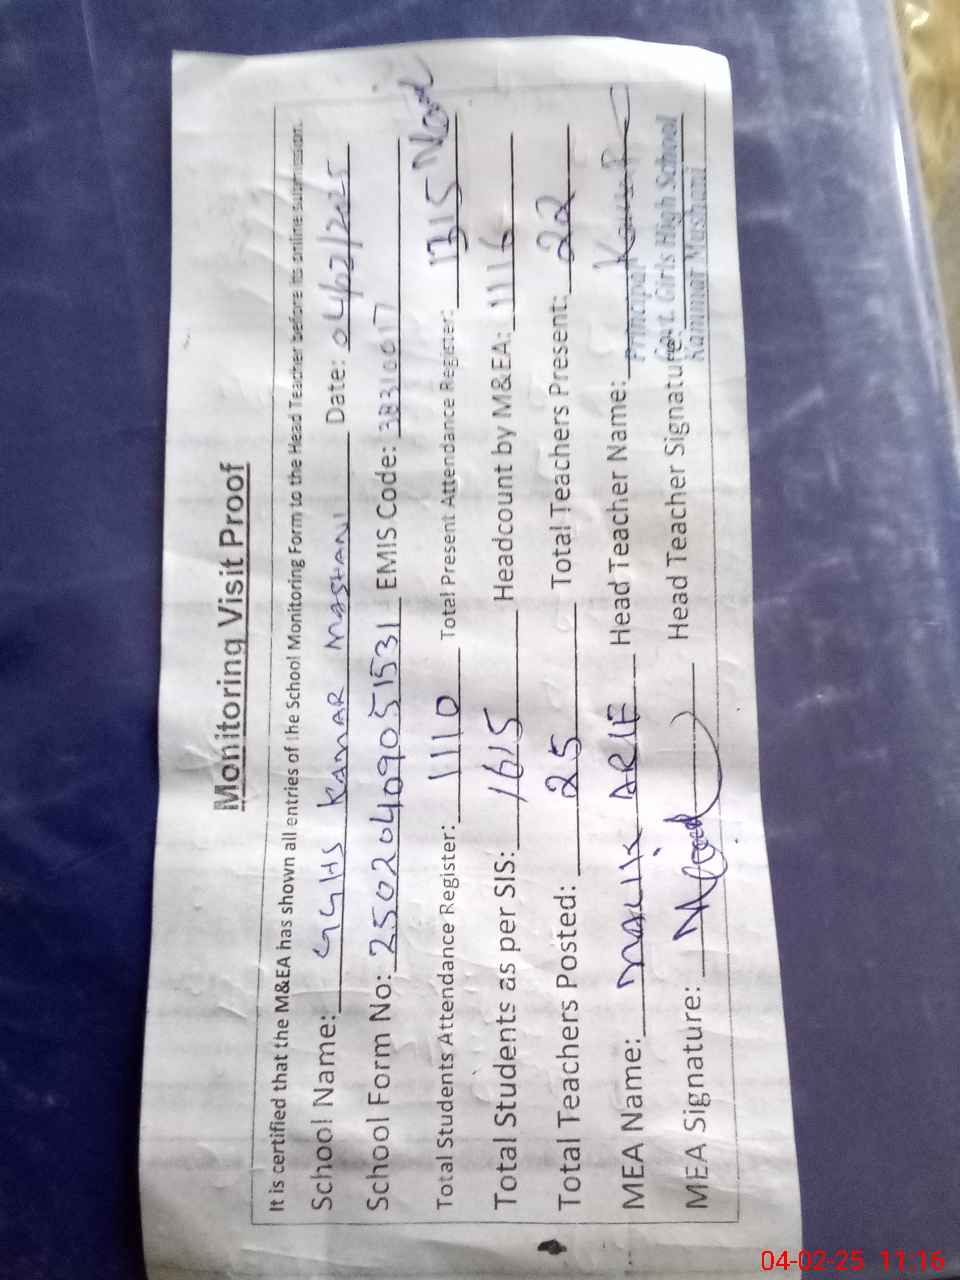 Monitoring Visit Proof
It is certified that the M&EA has shown all entries of the School Monitoring Form to the Head Teacher before its online submission.
School Name: GGHS KAMAR MASHANI Date: 04/02/2025
School Form No: 25020409051531 EMIS Code: 38310017
Total Students Attendance Register: 1110 Total Present Attendance Register: 1315
Total Students as per SIS: 1615 Headcount by M&EA: 1116
Total Teachers Posted: 25 Total Teachers Present: 22
MEA Name: MALIK ARIF Head Teacher Name: Kausar P
Principal
MEA Signature: Head Teacher Signature:
Govt. Girls High School
Kammar Mushani
04-02-25 11:16